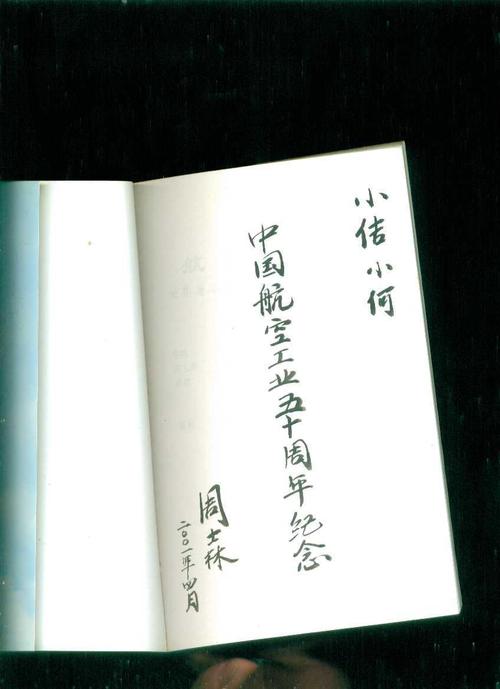 小佶 小何
中国航空工业五十周年纪念
周士林
二〇〇一年四月